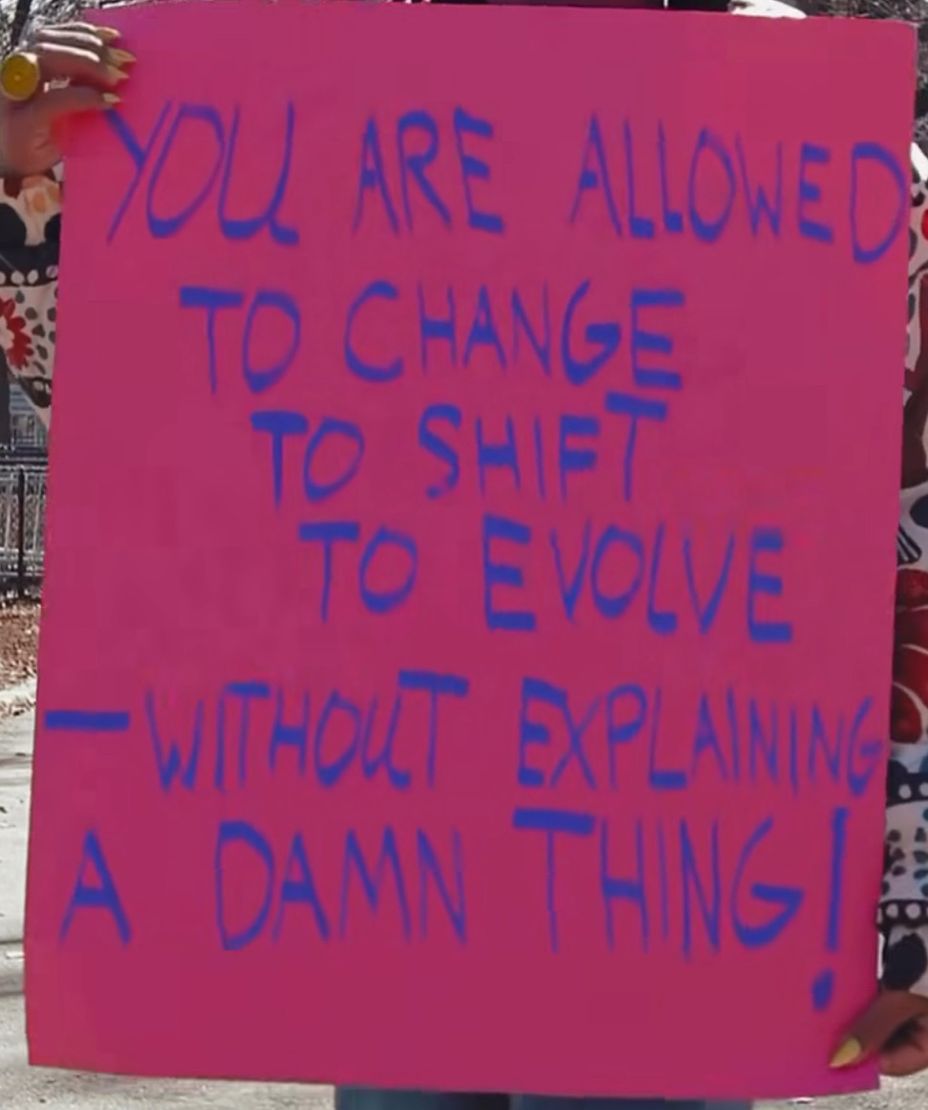 YOU ARE ALLOWED
TO CHANGE
TO SHIFT
TO EVOLVE
—WITHOUT EXPLAINING
A DAMN THING!